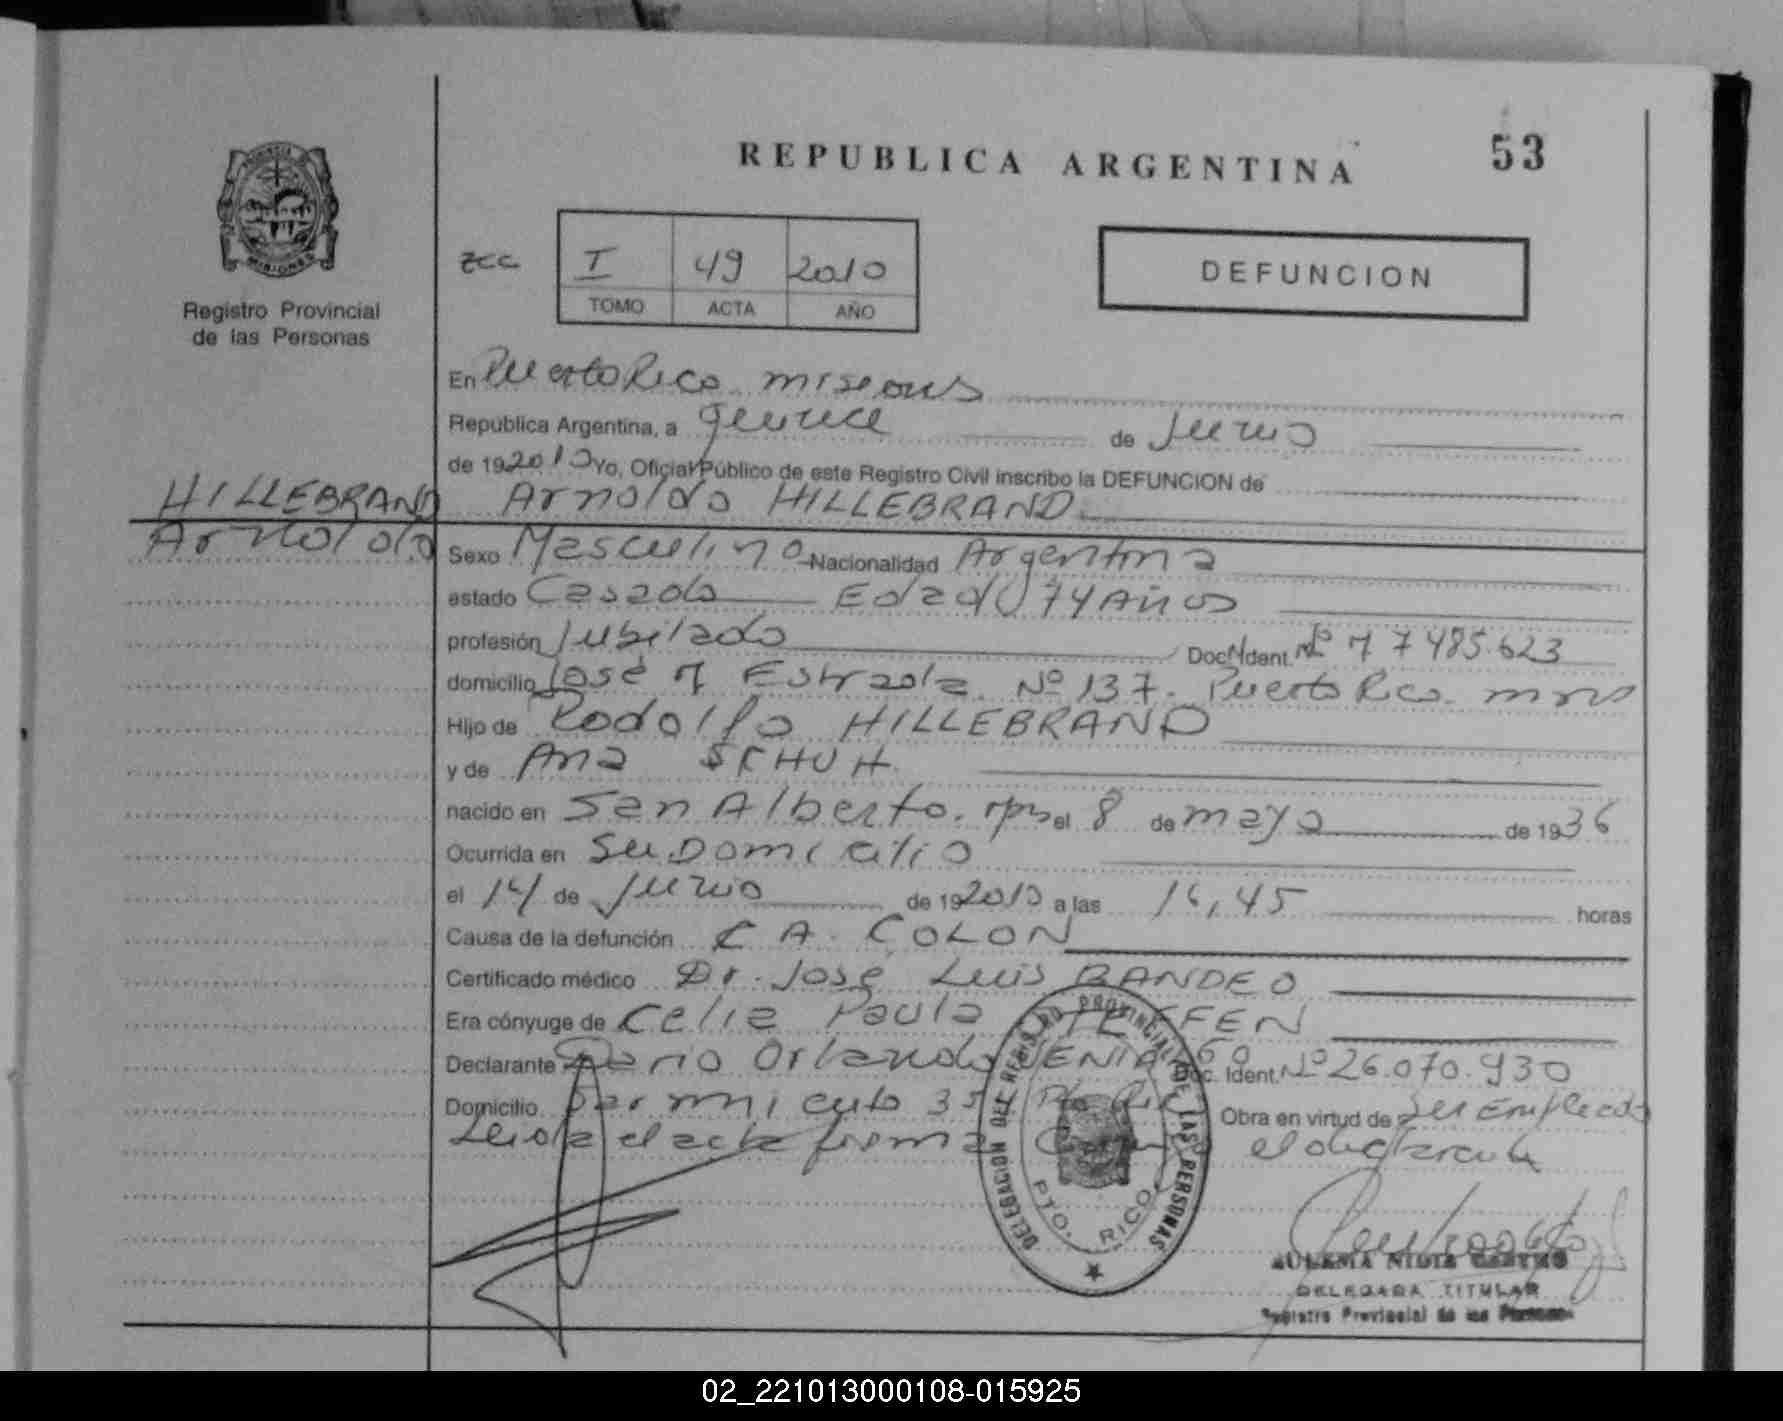 REPUBLICA ARGENTINA
53
PROVINCIA DE MISIONES
Registro Provincial
de las Personas
I 49 2010
TOMO ACTA AÑO
DEFUNCION
En Puerto Rico misiones
República Argentina, a quince de Junio
de 19 2010 Yo, Oficial Público de este Registro Civil inscribo la DEFUNCION de
HILLEBRAND Arnoldo HILLEBRAND
Arnoldo
Sexo Masculino Nacionalidad Argentina
estado Casado Edad 74 Años
profesión Jubilado Doc. Ident. Nº M 7.485.623
domicilio José M Estrada Nº 137. Puerto Rico mnes
Hijo de Rodolfo HILLEBRAND
y de Ana SCHUH
nacido en San Alberto. mns el 8 de mayo de 1936
Ocurrida en Su Domicilio
el 14 de Junio de 19 2010 a las 16,45 horas
Causa de la defunción C A. COLON
Certificado médico Dr. José Luis BANDEO
Era cónyuge de Celia Paula STEFFEN
Declarante Dario Orlando Doc. Ident. Nº 26.070.930
Domicilio Sarmiento 35 Pto Rico Obra en virtud de Ser Empleado
Leida el acta firma el declarante
DELEGACION DEL REGISTRO PROVINCIAL DE LAS PERSONAS
PTO. RICO
ZULEMA NIDIA CASTRO
DELEGADA TITULAR
Registro Provincial de las Personas
02_221013000108-015925